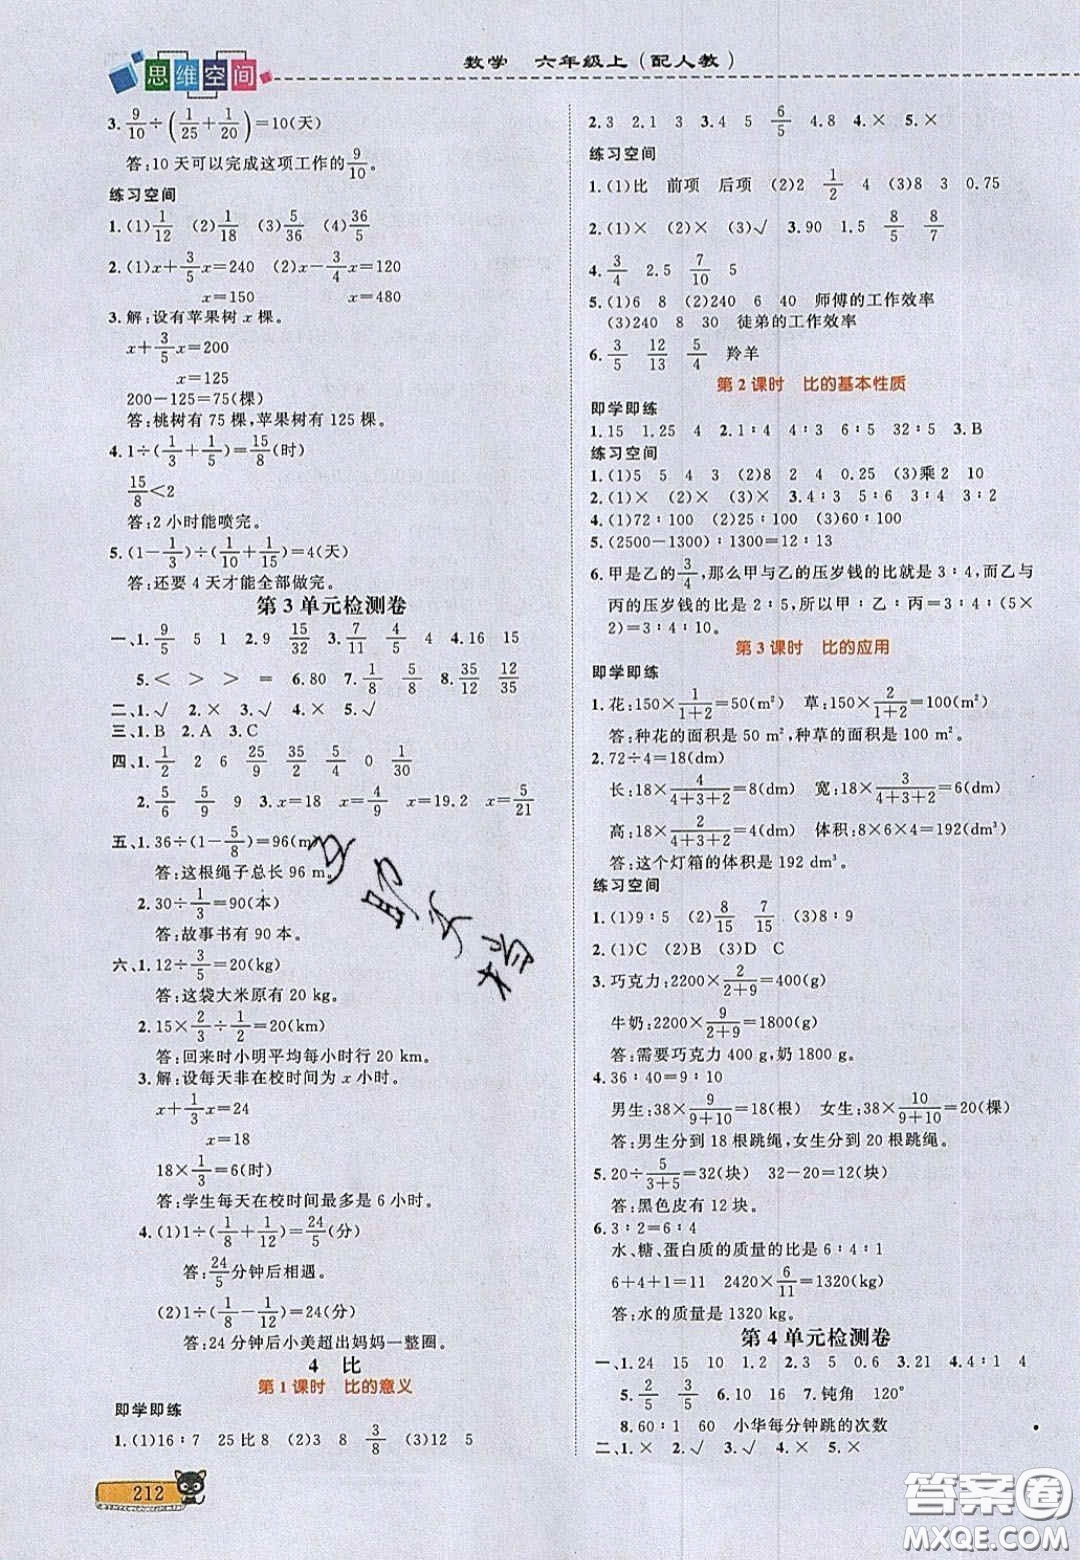 思维空间
数学 六年级上(配人教)
3. 9/10÷(1/25+1/20)=10(天)
答:10 天可以完成这项工作的9/10。
练习空间
1.(1)1/12 (2)1/18 (3)5/36 (4)36/5
2.(1)x+3/5x=240 (2)x-3/4x=120
x=150 x=480
3.解:设有苹果树 x 棵。
x+3/5x=200
x=125
200-125=75(棵)
答:桃树有 75 棵,苹果树有 125 棵。
4.1÷(1/3+1/5)=15/8(时)
15/8<2
答:2 小时能喷完。
5.(1-1/3)÷(1/10+1/15)=4(天)
答:还要 4 天才能全部做完。
第 3 单元检测卷
一、1. 9/5 5 1 2.9 15/32 3. 7/11 4/5 4 4.16 15
5.< > > = 6.80 7. 1/8 5/8 8. 35/12 12/35
二、1.√ 2.× 3.√ 4.× 5.√
三、1.B 2.A 3.C
四、1. 1/2 2 6 25/9 35/2 5/4 0 1/30
2. 5/6 5/9 9 3.x=18 x=4/9 x=19.2 x=5/21
五、1.36÷(1-5/8)=96(m)
答:这根绳子总长 96 m。
2.30÷1/3=90(本)
答:故事书有 90 本。
六、1.12÷3/5=20(kg)
答:这袋大米原有 20 kg。
2.15×2/3÷1/2=20(km)
答:回来时小明平均每小时行 20 km。
3.解:设每天非在校时间为 x 小时。
x+1/3x=24
x=18
18×1/3=6(时)
答:学生每天在校时间最多是 6 小时。
4.(1)1÷(1/8+1/12)=24/5(分)
答:24/5分钟后相遇。
(2)1÷(1/8-1/12)=24(分)
答:24 分钟后小美超出妈妈一整圈。
4 比
第 1 课时 比的意义
即学即练
1.(1)16∶7 25 比 8 (2)3 8 3/8 (3)12 5
212
2.3 2.1 3 3.4 5 6/5 4.8 4.× 5.×
练习空间
1.(1)比 前项 后项 (2)2 1/2 4 (3)8 3 0.75
2.(1)× (2)× (3)√ 3.90 1.5 8/5 8/7
4. 3/4 2.5 7/10 5
5.(1)6 8 (2)240 6 40 师傅的工作效率
(3)240 8 30 徒弟的工作效率
6. 3/5 12/13 5/4 羚羊
第 2 课时 比的基本性质
即学即练
1.15 1.25 4 2.1∶4 4∶3 6∶5 32∶5 3.B
练习空间
1.(1)5 5 4 3 (2)8 2 4 0.25 (3)乘2 10
2.(1)× (2)× (3)× 3.4∶3 5∶6 3∶4 3∶2
4.(1)72∶100 (2)25∶100 (3)60∶100
5.(2500-1300)∶1300=12∶13
6.甲是乙的3/4,那么甲与乙的压岁钱的比就是 3∶4,而乙与
丙的压岁钱的比是 2∶5,所以甲∶乙∶丙=3∶4∶(5×
2)=3∶4∶10。
第 3 课时 比的应用
即学即练
1.花:150×1/(1+2)=50(m²) 草:150×2/(1+2)=100(m²)
答:种花的面积是 50 m²,种草的面积是 100 m²。
2.72÷4=18(dm)
长:18×4/(4+3+2)=8(dm) 宽:18×3/(4+3+2)=6(dm)
高:18×2/(4+3+2)=4(dm) 体积:8×6×4=192(dm³)
答:这个灯箱的体积是 192 dm³。
练习空间
1.(1)9∶5 (2)8/15 7/15 (3)8∶9
2.(1)C (2)B (3)D C
3.巧克力:2200×2/(2+9)=400(g)
牛奶:2200×9/(2+9)=1800(g)
答:需要巧克力 400 g,奶 1800 g。
4.36∶40=9∶10
男生:38×9/(9+10)=18(根) 女生:38×10/(9+10)=20(棵)
答:男生分到 18 根跳绳,女生分到 20 根跳绳。
5.20÷5/(3+5)=32(块) 32-20=12(块)
答:黑色皮有 12 块。
6.3∶2=6∶4
水、糖、蛋白质的质量的比是 6∶4∶1
6+4+1=11 2420×6/11=1320(kg)
答:水的质量是 1320 kg。
第 4 单元检测卷
一、1.24 15 10 1.2 2.3 5 0.6 3.21 4.4∶1 4
5. 2/5 3/5 6.10 16 7.钝角 120°
8.60∶1 60 小华每分钟跳的次数
二、1.× 2.√ 3.√ 4.× 5.×
答案圈
MXQE.COM